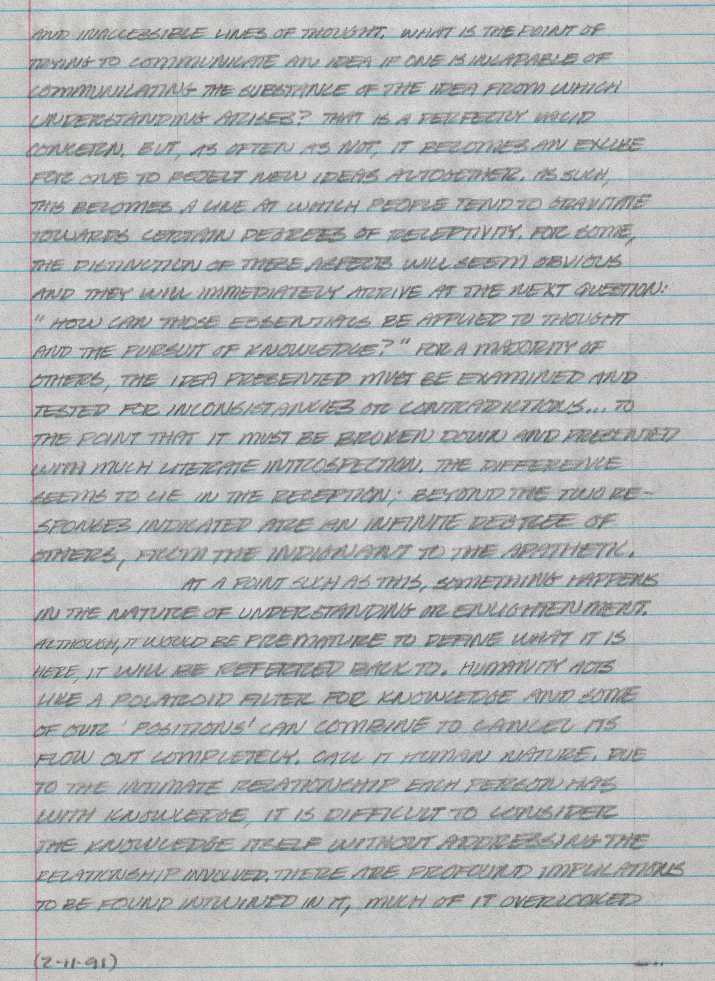 AND INACCESSIBLE LINES OF THOUGHT. WHAT IS THE POINT OF
TRYING TO COMMUNICATE AN IDEA IF ONE IS INCAPABLE OF
COMMUNICATING THE SUBSTANCE OF THE IDEA FROM WHICH
UNDERSTANDING ARISES? THAT IS A PERFECTLY VALID
CONCERN. BUT, AS OFTEN AS NOT, IT BECOMES AN EXCUSE
FOR ONE TO REJECT NEW IDEAS ALTOGETHER. AS SUCH,
THIS BECOMES A LINE AT WHICH PEOPLE TEND TO GRAVITATE
TOWARDS CERTAIN DEGREES OF RECEPTIVITY. FOR SOME,
THE DISTINCTION OF THESE ASPECTS WILL SEEM OBVIOUS
AND THEY WILL IMMEDIATELY ARRIVE AT THE NEXT QUESTION:
"HOW CAN THOSE ESSENTIALS BE APPLIED TO THOUGHT
AND THE PURSUIT OF KNOWLEDGE?" FOR A MAJORITY OF
OTHERS, THE IDEA PRESENTED MUST BE EXAMINED AND
TESTED FOR INCONSISTANCIES OR CONTRADICTIONS... TO
THE POINT THAT IT MUST BE BROKEN DOWN AND PRESENTED
WITH MUCH LITERATE INTROSPECTION. THE DIFFERENCE
SEEMS TO LIE IN THE RECEPTION; BEYOND THE TWO RE-
SPONSES INDICATED ARE AN INFINITE DEGREE OF
OTHERS, FROM THE INDIGNANT TO THE APATHETIC.
AT A POINT SUCH AS THIS, SOMETHING HAPPENS
IN THE NATURE OF UNDERSTANDING OR ENLIGHTENMENT.
ALTHOUGH, IT WOULD BE PREMATURE TO DEFINE WHAT IT IS
HERE, IT WILL BE REFERRED BACK TO. HUMANITY ACTS
LIKE A POLAROID FILTER FOR KNOWLEDGE AND SOME
OF OUR 'POSITIONS' CAN COMBINE TO CANCEL ITS
FLOW OUT COMPLETELY. CALL IT HUMAN NATURE. DUE
TO THE INTIMATE RELATIONSHIP EACH PERSON HAS
WITH KNOWLEDGE, IT IS DIFFICULT TO CONSIDER
THE KNOWLEDGE ITSELF WITHOUT ADDRESSING THE
RELATIONSHIP INVOLVED. THERE ARE PROFOUND IMPLICATIONS
TO BE FOUND INTWINED IN IT, MUCH OF IT OVERLOOKED
(2-11-91)